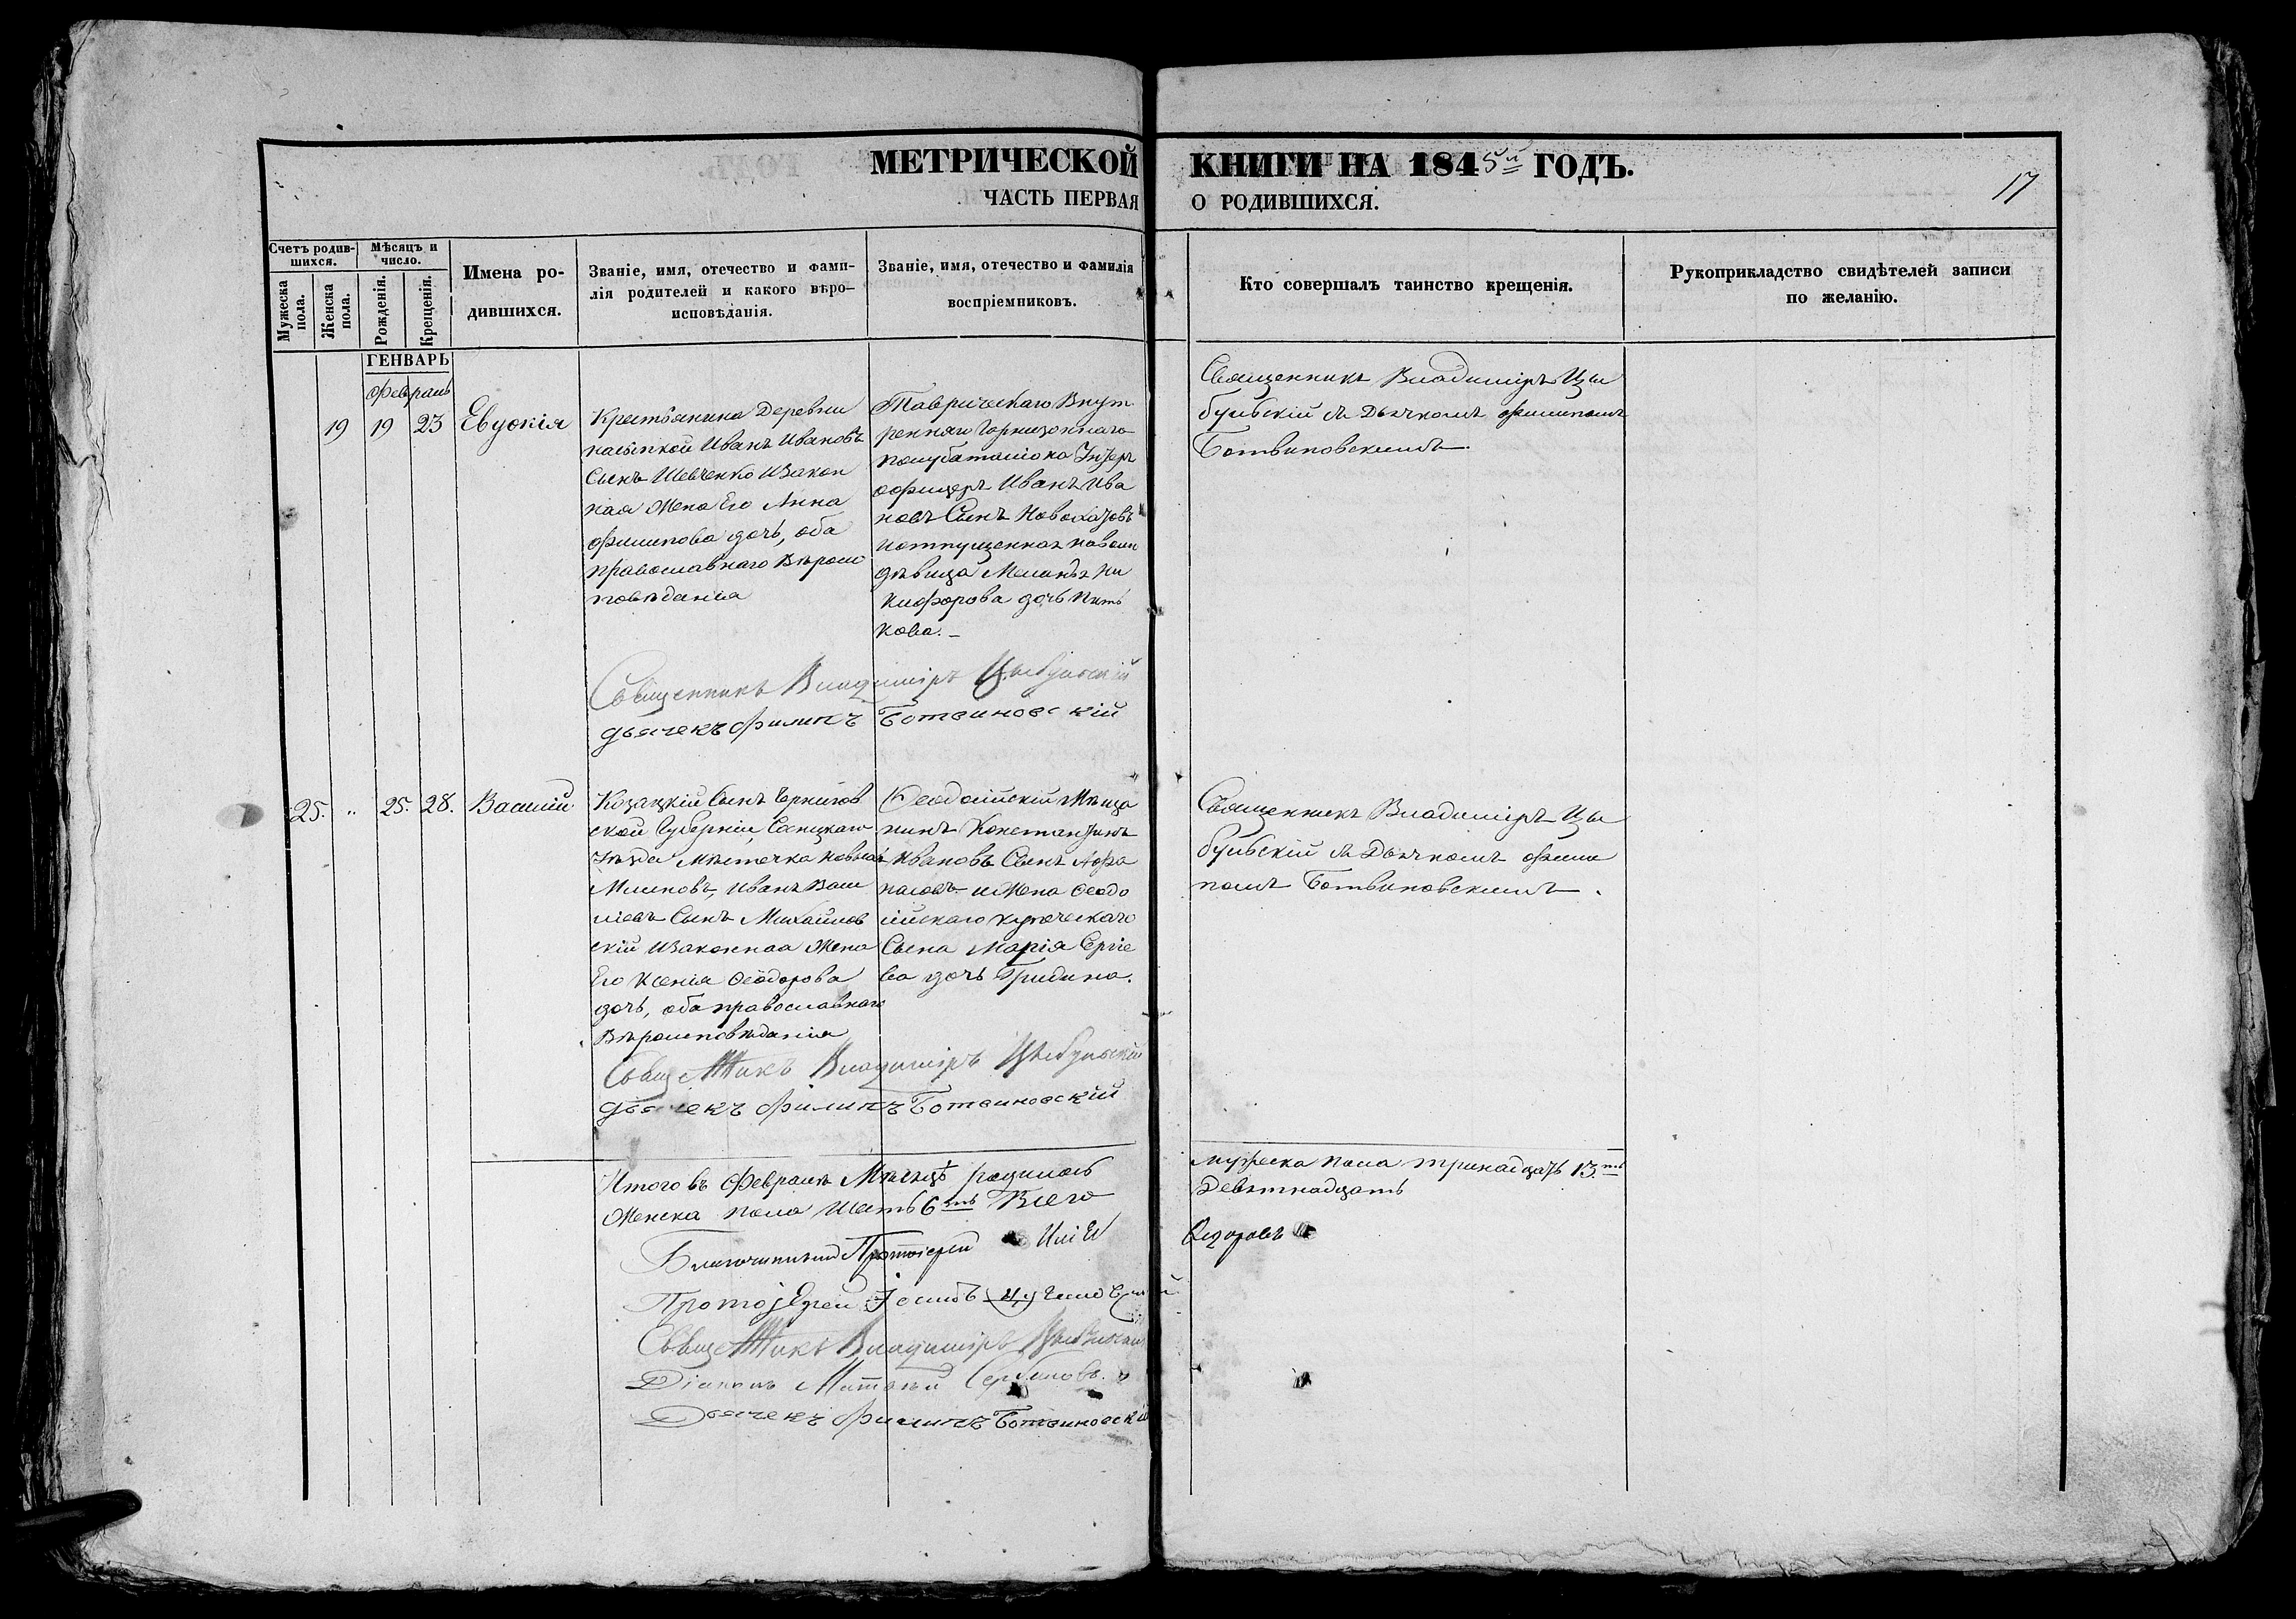 МЕТРИЧЕСКОЙ КНИГИ НА 1845й ГОДЪ.
ЧАСТЬ ПЕРВАЯ О РОДИВШИХСЯ.
17
Счетъ родив-
шихся.
Мужеска
пола.
Женска
пола.
Мѣсяцъ и
число.
Рожденія.
Крещенія.
Имена ро-
дившихся.
Званіе, имя, отечество и фами-
лія родителей и какого вѣро-
исповѣданія.
Званіе, имя, отечество и фамилія
воспріемниковъ.
Кто совершалъ таинство крещенія.
Рукоприкладство свидѣтелей записи
по желанію.
ГЕНВАРЬ
Февраль
19 19 23 Евдокія
Крестьянина Деревни
Иванъ Ивановъ
Сынъ Шевченко Изакон
ная Жена Его Анна
Филипова дочь, оба
православнаго Вѣроис
повѣданія
Таврическаго Внут
ренняго Гарнизоннаго
полубаталіона Унтеръ
офицеръ Иванъ Ива
новъ Сынъ
дѣвица Ми
кифорова дочь
кова.
Священникъ Владиміръ Цы
бульскій съ Дьячкомъ Филипомъ
Ботвиновскимъ
Священникъ Владиміръ Цыбульскій
дьячекъ Филипъ Ботвиновскій
25. „ 25. 28. Василій
Козацкій Сынъ Чернигов
ской Губерніи, Сосницкаго
Уѣзда Мѣстечка Новыхъ
Млиновъ, Иванъ Васи
ліевъ Сынъ Михайлов
скій Изаконная Жена
Его Ксенія Феодорова
дочь, оба православнаго
Вѣроисповѣданія
Феодосійскій Мѣща
нинъ Константинъ
Ивановъ Сынъ Афа
насовъ и Жена Феодо
сійскаго купеческаго
Сына Марія Сергіе
ва дочь Гридина.
Священникъ Владиміръ Цы
бульскій съ Дьячкомъ Фили
помъ Ботвиновскимъ.
Священникъ Владиміръ Цыбульскій
дьячекъ Филипъ Ботвиновскій
Итого въ Февралѣ Мѣсяцѣ родилось мужеска пола тринадцать 13ть
Женска пола шесть 6ть Всего Девятнадцать
Благочинный Протоіерей
Протоіерей Іосифъ
Священникъ Владиміръ Цыбульскій
Діаконъ Матвѣй Сербиновъ.
Дьячекъ Филипъ Ботвиновскій